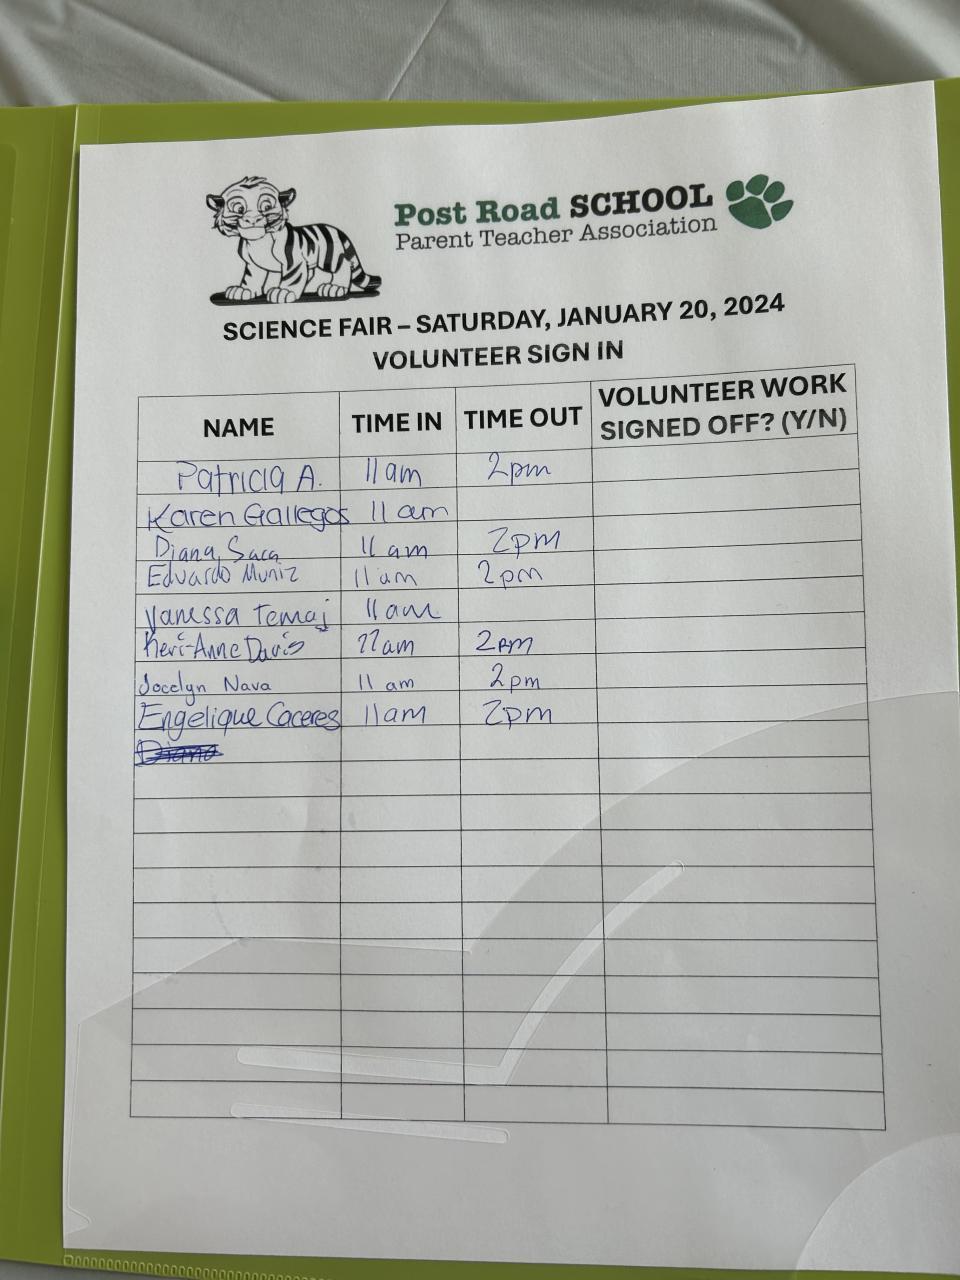 Post Road SCHOOL
Parent Teacher Association
SCIENCE FAIR – SATURDAY, JANUARY 20, 2024
VOLUNTEER SIGN IN
NAME TIME IN TIME OUT VOLUNTEER WORK SIGNED OFF? (Y/N)
Patricia A. 11am 2pm
Karen Gallegos 11 am
Diana Saca 11 am 2pm
Eduardo Muniz 11am 2pm
Vanessa Temaj 11am
Keri-Anne Davis 11am 2pm
Jocelyn Nava 11 am 2pm
Engelique Caceres 11am 2pm
Diana